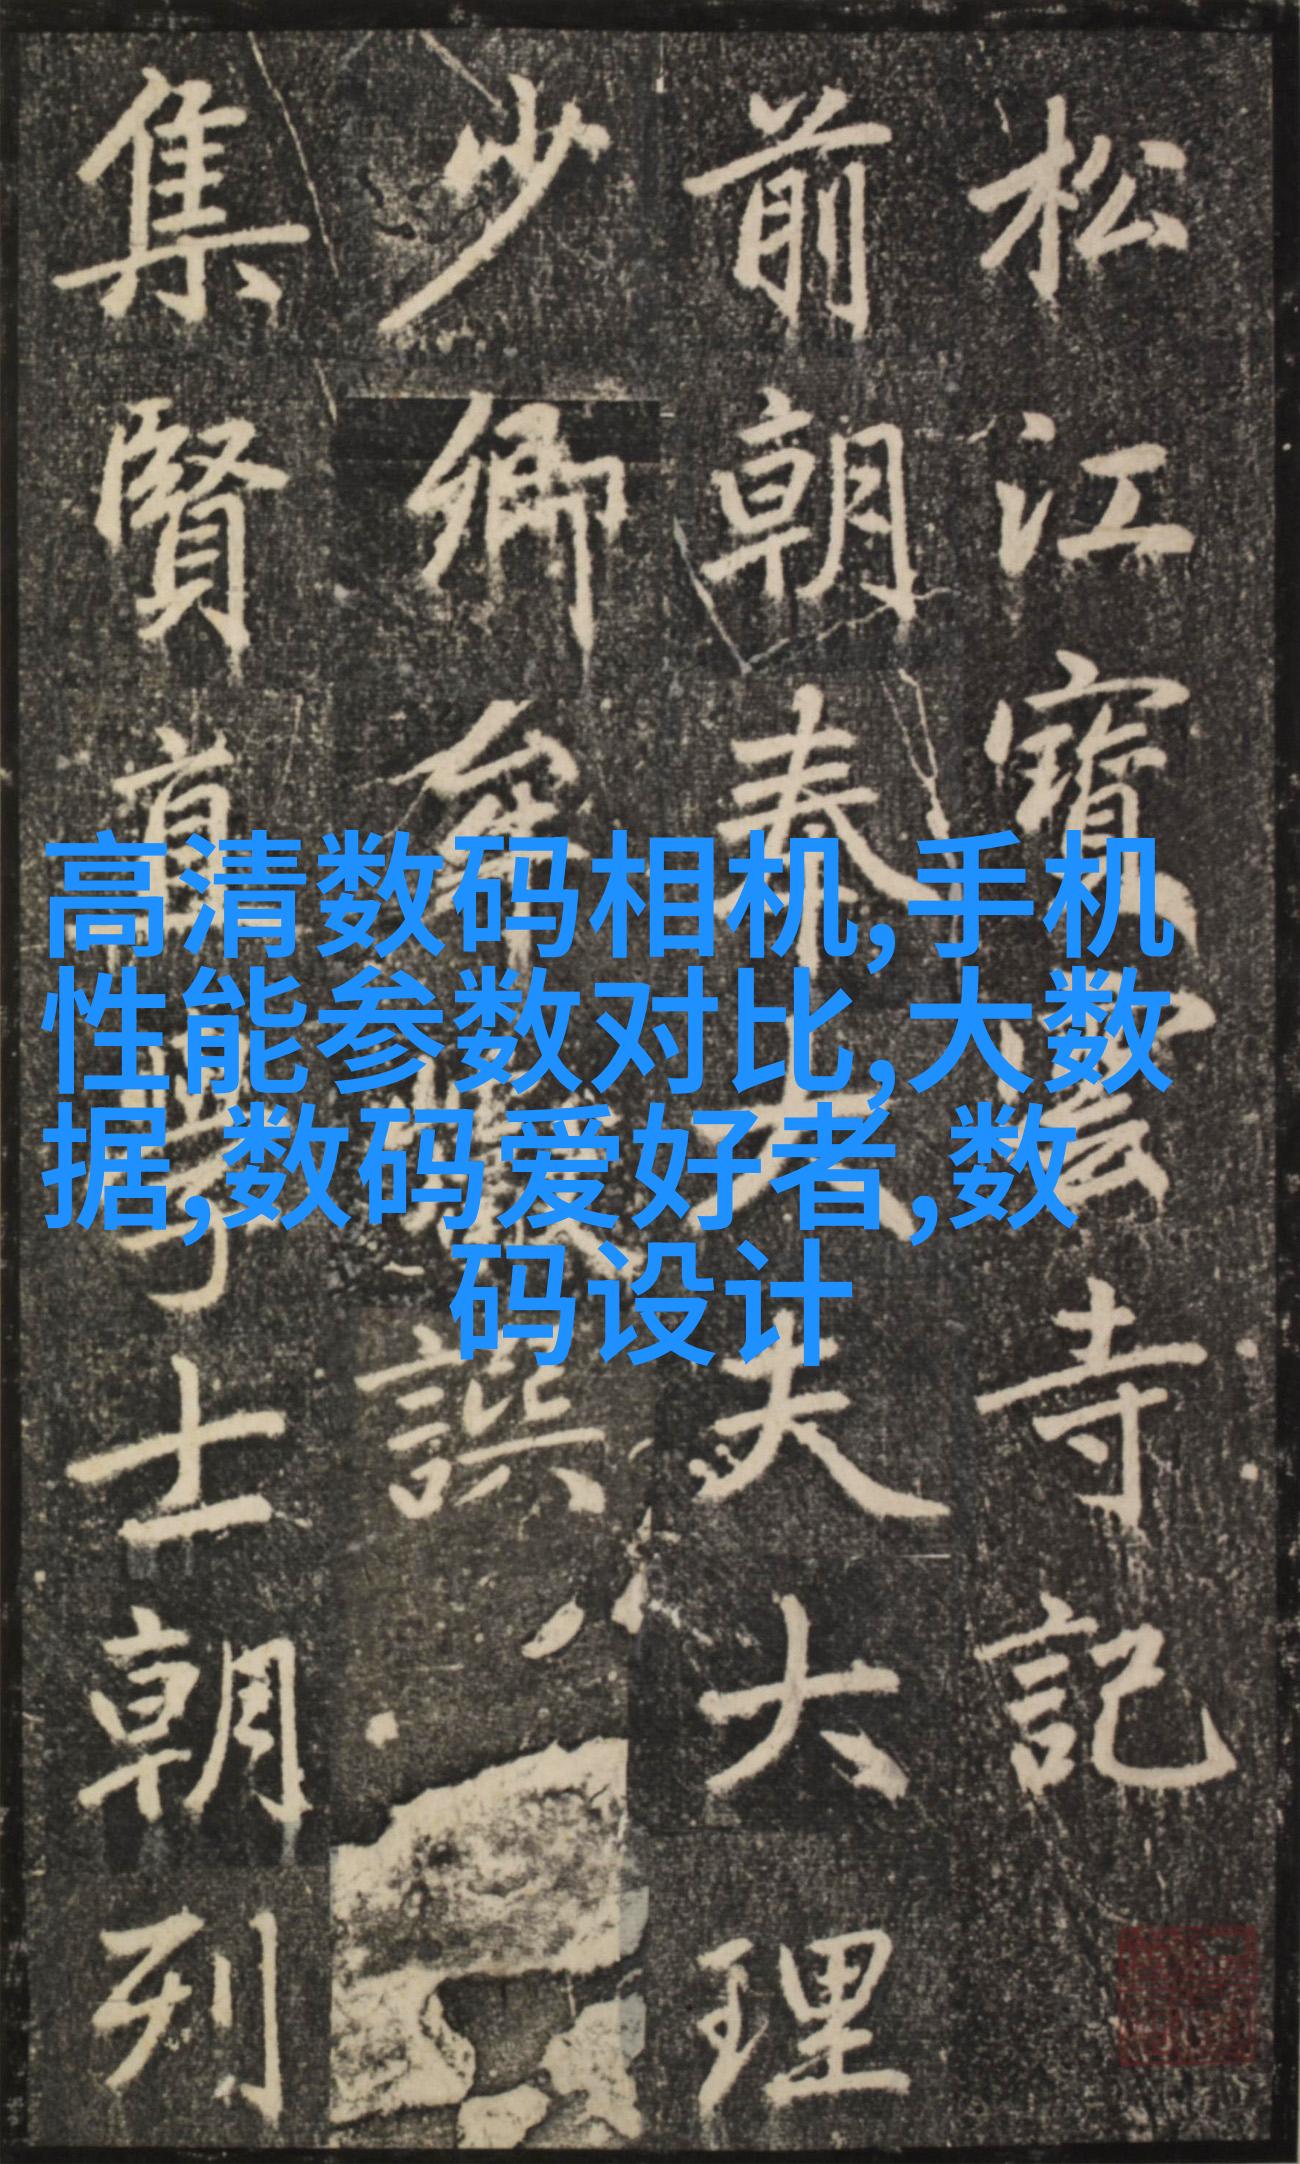 松江寶雲寺記
前朝奉大夫大理
少卿牟巘譔
集賢直學士朝列
高清数码相机,手机
性能参数对比,大数
据,数码爱好者,数
码设计